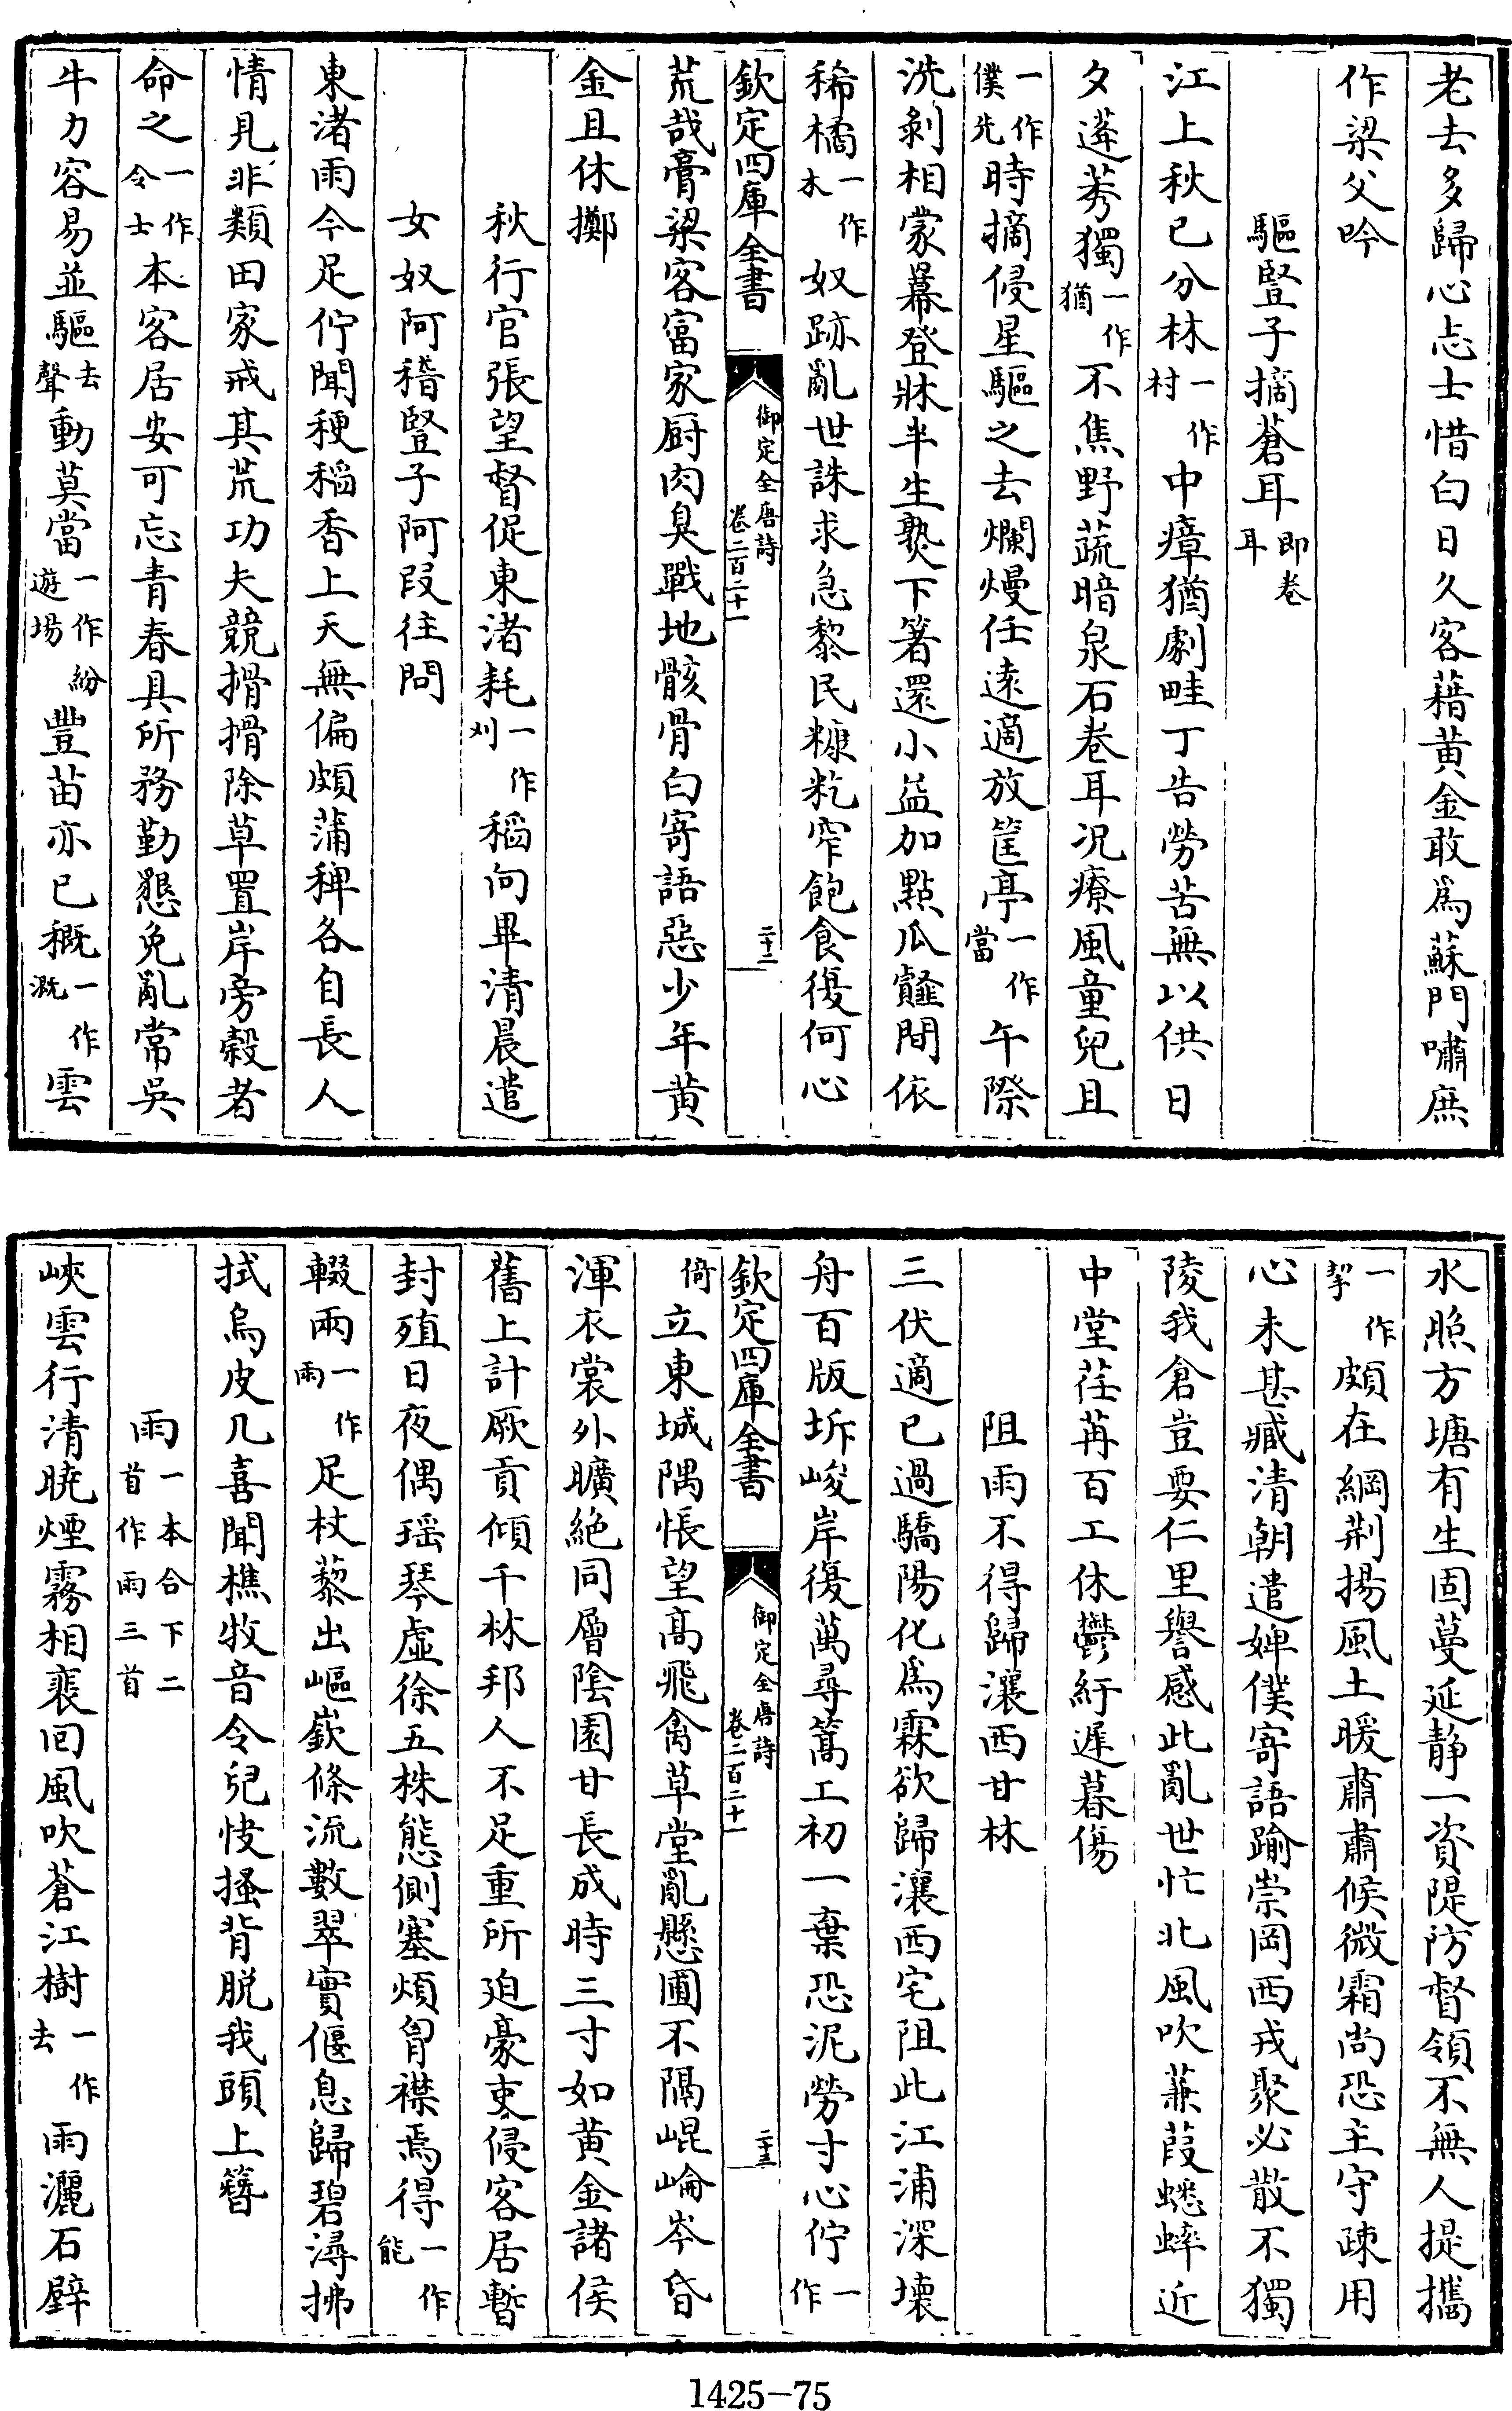 老去多歸心志士惜白日久客藉黄金敢為蘇門嘯庶
作梁父吟
驅豎子摘蒼耳即卷耳
江上秋已分林一作村中瘴猶劇畦丁告勞苦無以供日
夕蓬莠獨一作猶不焦野蔬暗泉石卷耳况療風童兒且
一作僕先時摘侵星驅之去爛熳任逺適放筐亭一作當午際
洗剥相蒙羃登牀半生熟下箸還小益加點瓜䪥間依
稀橘一作木奴跡亂世誅求急黎民糠籺窄飽食復何心
欽定四庫全書 御定全唐詩 卷二百二十一 二十二
荒哉膏粱客富家厨肉臭戰地骸骨白寄語惡少年黄
金且休擲
秋行官張望督促東渚耗一作刈稻向畢清晨遣
女奴阿稽豎子阿段往問
東渚雨今足佇聞稉稻香上天無偏頗蒲稗各自長人
情見非類田家戒其荒功夫競搰搰除草置岸旁榖者
命之一作令士本客居安可忘青春具所務勤懇免亂常吳
牛力容易並驅去聲動莫當一作紛遊場豐苗亦已穊一作溉雲
水照方塘有生固蔓延静一資隄防督領不無人提攜
一作挈頗在綱荆揚風土暖肅肅候微霜尚恐主守疎用
心未甚臧清朝遣婢僕寄語踰崇岡西戎聚必散不獨
陵我倉豈要仁里譽感此亂世忙北風吹蒹葭蟋蟀近
中堂荏苒百工休鬱紆遲暮傷
阻雨不得歸瀼西甘林
三伏適已過驕陽化為霖欲歸瀼西宅阻此江浦深壊
舟百版坼峻岸復萬尋篙工初一棄恐泥勞寸心佇一作
欽定四庫全書 御定全唐詩 卷二百二十一 二十三
倚立東城隅悵望髙飛禽草堂亂懸圃不隔崐崘岑昏
渾衣裳外曠絶同層陰園甘長成時三寸如黄金諸侯
舊上計厥貢傾千林邦人不足重所迫豪吏侵客居暫
封殖日夜偶瑶琴虚徐五株態側塞煩胷襟焉得一作能
輟兩一作雨足杖藜出嶇嶔條流數翠實偃息歸碧潯拂
拭烏皮几喜聞樵牧音令兒快搔背脱我頭上簪
雨一本合下二首作雨三首
峽雲行清曉煙霧相裴回風吹蒼江樹一作去雨灑石壁
1425-75